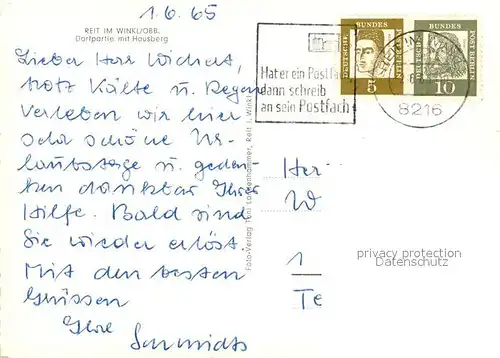 1.6.65
REIT IM WINKL/OBB.
Dorfpartie mit Hausberg
Lieber Herr Wichert,
trotz Kälte u. Regen
verleben wir hier
sehr schöne Ur-
laubstage u. geden-
ken dankbar Ihrer
Hilfe. Bald sind
Sie wieder erlöst.
Mit den besten
Grüssen
Ihre Schmidts
Foto-Verlag Toni Reit i. Winkl
Hat er ein Postfach
dann schreib
an sein Postfach
DEUTSCHE
BUNDES
POST BERLIN
5
DEUTSCHE
BUNDES
POST BERLIN
10
REIT IM WINKL
8216
Her
W
1
Te
privacy protection
Datenschutz